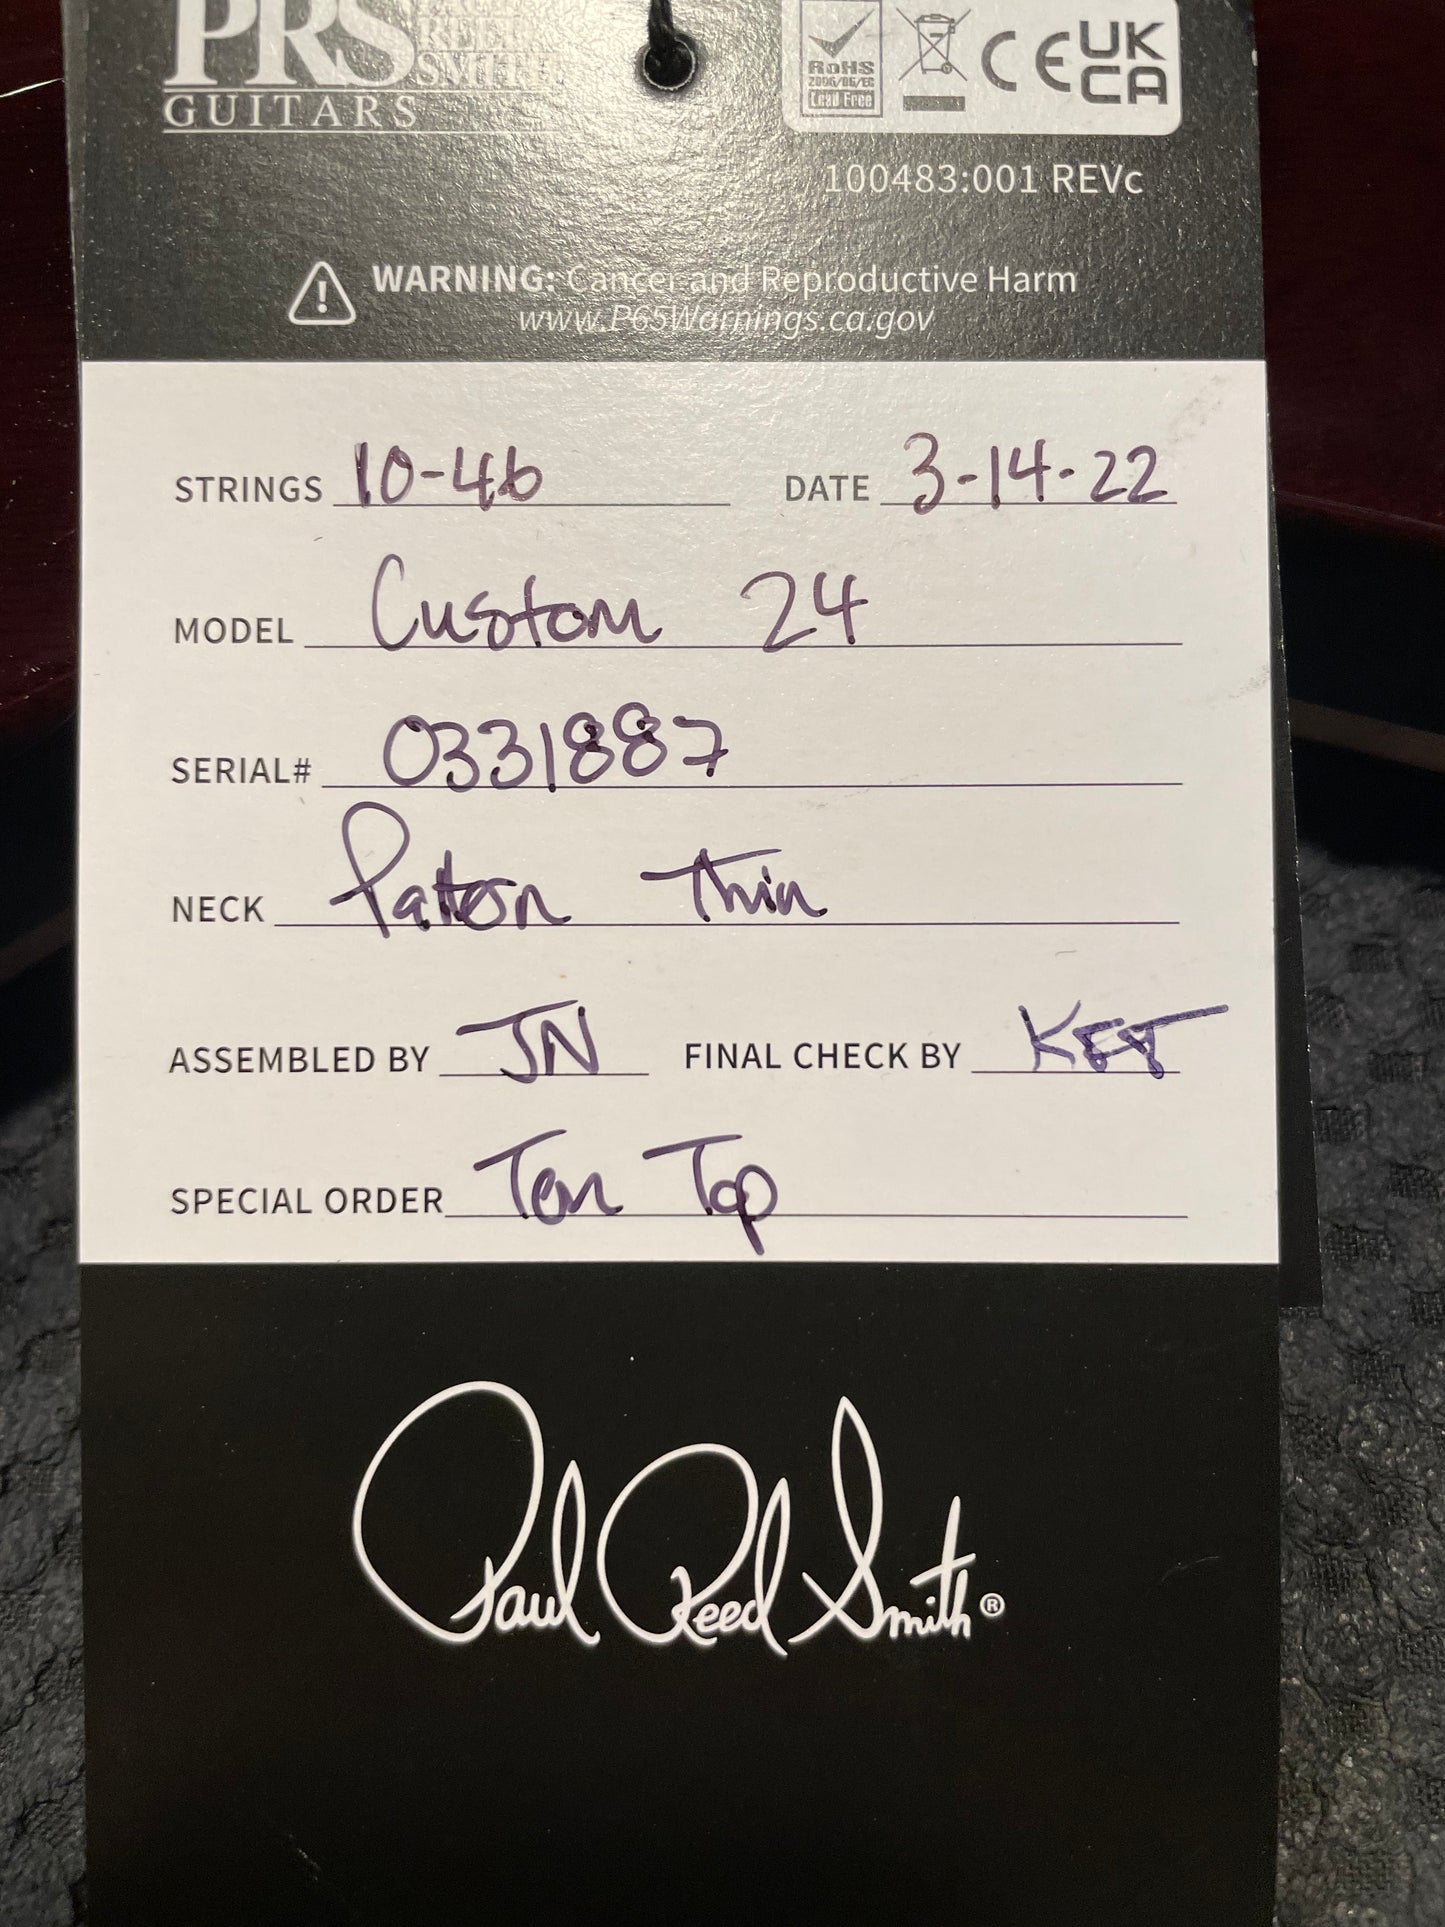 PRS REED SMITH
GUITARS
RoHS
2006/95/EC
Lead Free
CE UK CA
100483:001 REVc
WARNING: Cancer and Reproductive Harm
www.P65Warnings.ca.gov
STRINGS 10-46 DATE 3-14-22
MODEL Custom 24
SERIAL# 0331887
NECK Pattern Thin
ASSEMBLED BY JN FINAL CHECK BY KET
SPECIAL ORDER Ten Top
Paul Reed Smith®